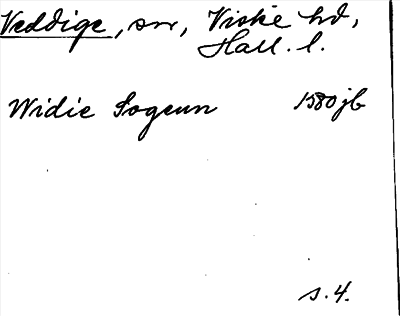 Veddige, sn, Viske hd,
Hall. l.
Widie Sogeun 1580 jb
s. 4.